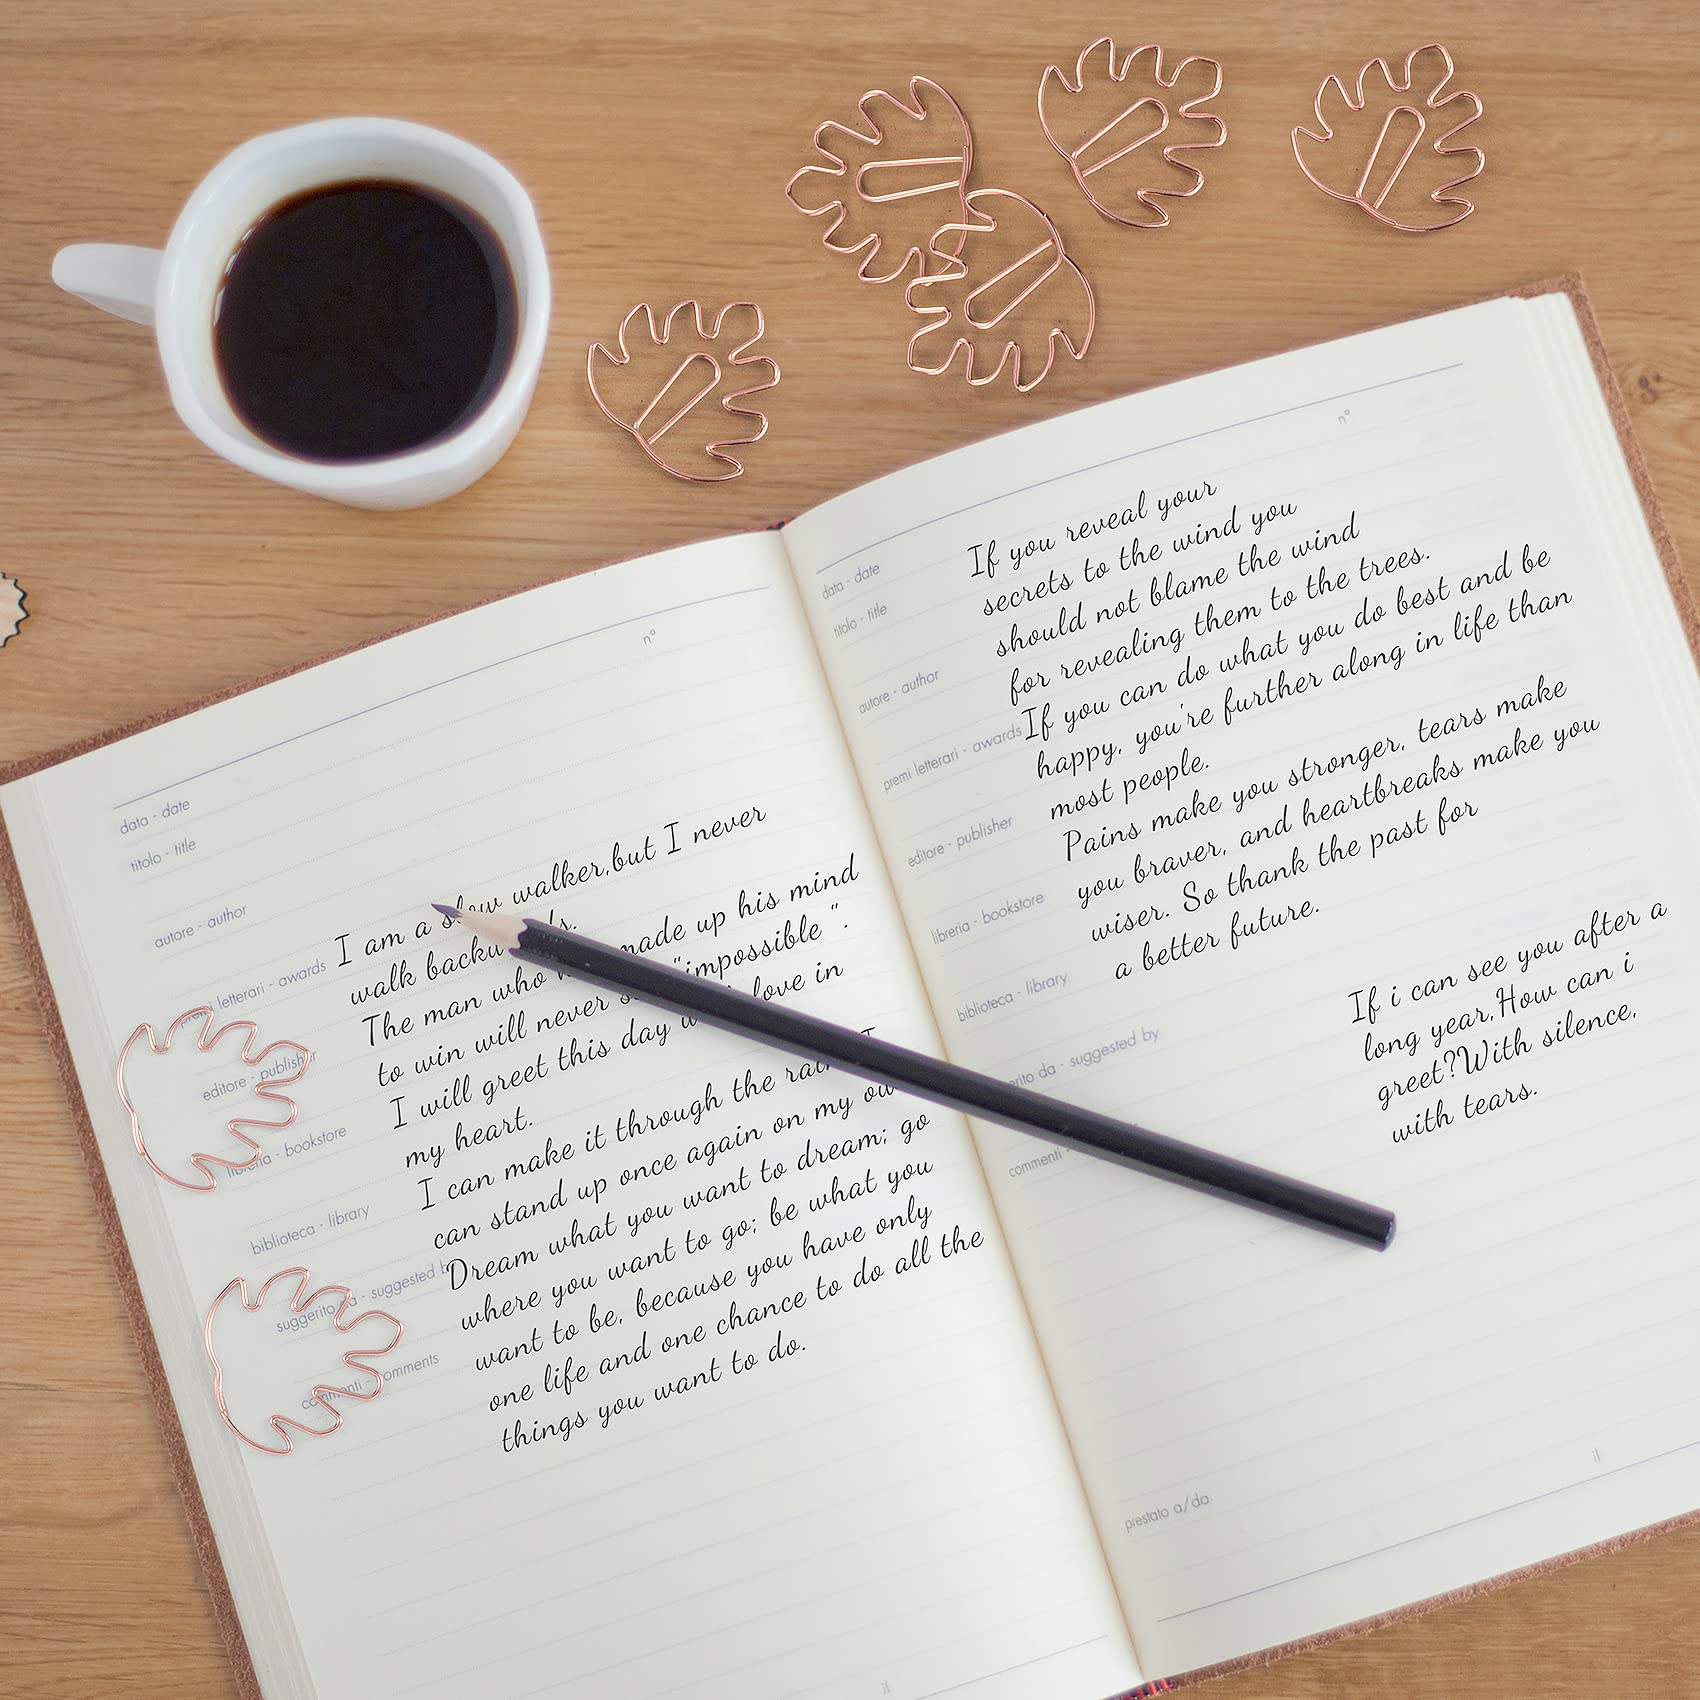 n°
data - date
titolo - title
autore - author
premi letterari - awards
editore - publisher
libreria - bookstore
biblioteca - library
suggerito da - suggested by
commenti - comments
I am a slow walker,but I never
walk backwards.
The man who made up his mind
to win will never "impossible ".
I will greet this day love in
my heart.
I can make it through the I
can stand up once again on my own
Dream what you want to dream; go
where you want to go; be what you
want to be, because you have only
one life and one chance to do all the
things you want to do.
il
n°
data - date
titolo - title
autore - author
premi letterari - awards
editore - publisher
libreria - bookstore
biblioteca - library
suggested by
commenti -
If you reveal your
secrets to the wind you
should not blame the wind
for revealing them to the trees.
If you can do what you do best and be
happy, you're further along in life than
most people.
Pains make you stronger, tears make
you braver, and heartbreaks make you
wiser. So thank the past for
a better future.
If i can see you after a
long year,How can i
greet?With silence,
with tears.
prestato a/da
il